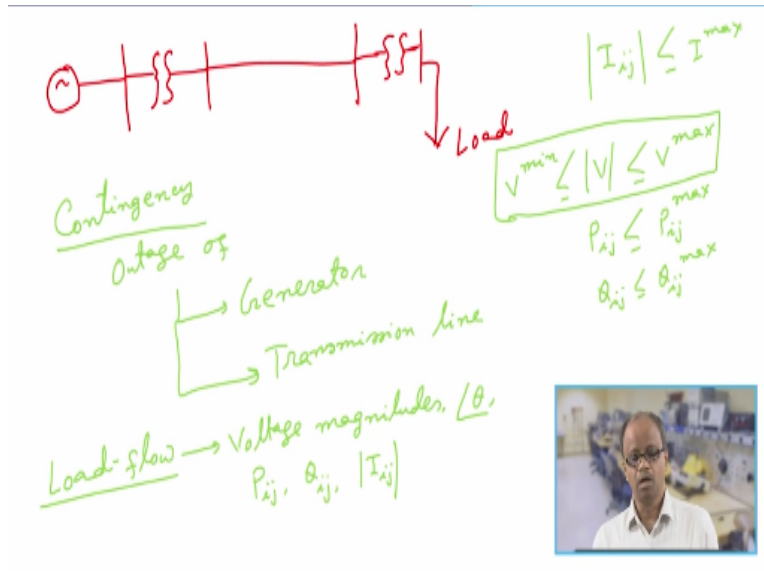 ~
Load
|I_ij| ≤ I^max
V^min ≤ |V| ≤ V^max
P_ij ≤ P_ij^max
Q_ij ≤ Q_ij^max
Contingency
Outage of
Generator
Transmission line
Load-flow → Voltage magnitudes, ∠θ,
P_ij, Q_ij, |I_ij|